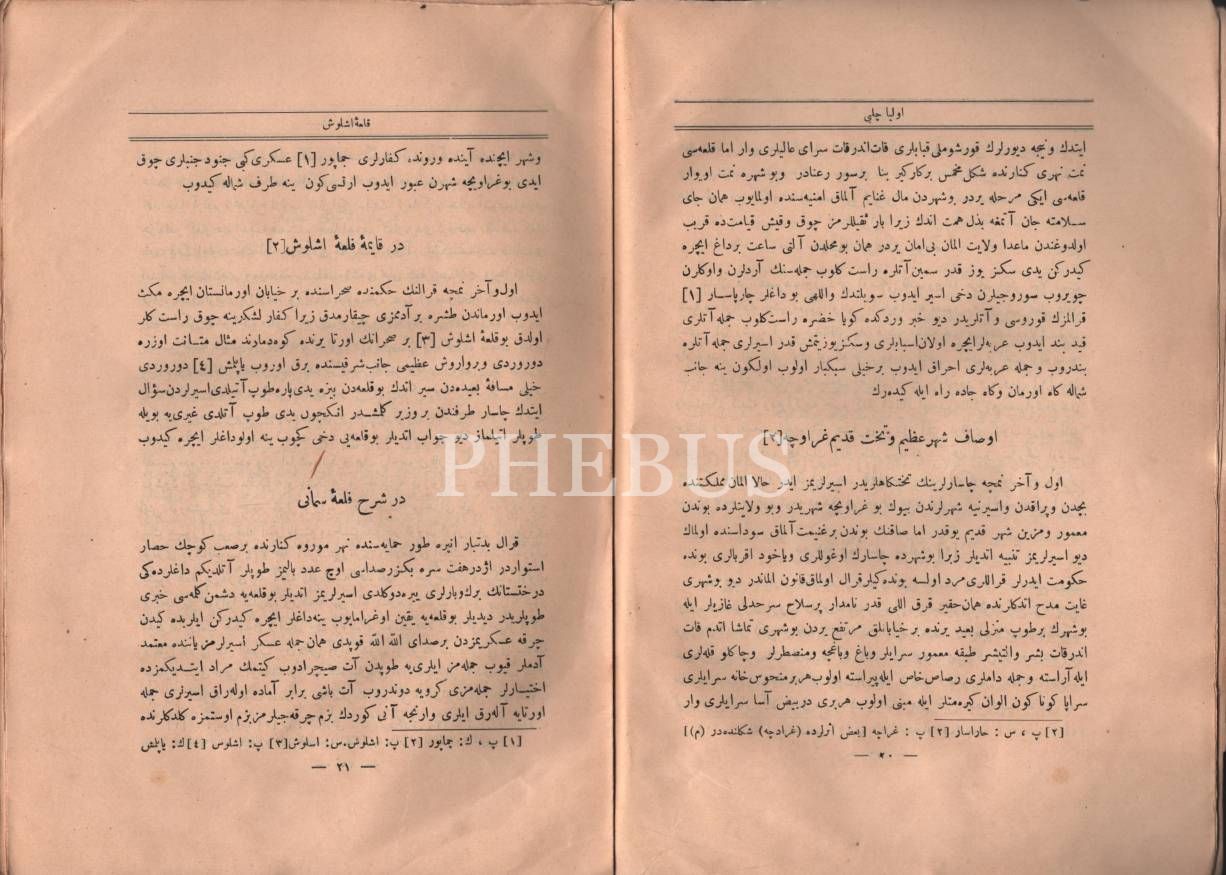 اوليا چلبى
ايتدك ونيجه ديورلرك قورشوملى قبابلرى قات‌اندرقات سراى عاليلرى وار اما قلعه‌سى
نمت نهرى كنارنده شكل مخمس بركاركير بنا برسور رعنادر وبو شهره نمت اويوار
قلعه‌سى ايكى مرحله يردر بو شهردن مال غنايم آلماق امنيه‌سنده اولمايوب همان جاى
سلامته جان آتمغه بذل همت اندك زيرا بار ثقيللرمز چوق وقيش قيامت‌ده قريب
اولدوغندن ماعدا ولايت المان بى‌امان يردر همان بومحلدن آلتى ساعت برداغ ايچره
كيدركن يدى سكز يوز قدر سمين آتلره راست كلوب جمله‌سنك آردلرن واوكلرن
چويروب سوروجيلرن دخى اسير ايدوب سويلتدك واللهى بوداغلر چارپاسار [١]
قرالمزك قوروسى وآتلريدر ديو خبر وردكده كويا خضره راست‌كلوب جمله آتلرى
قيد بند ايدوب عربه‌لرايچره اولان‌اسبابلرى وسكزيوزيتمش قدر اسيرلرى جمله آتلره
بندروب وجمله عربه‌لرى احراق ايدوب برخيلى سبكبار اولوب اولكون ينه جانب
شماله كاه اورمان وكاه جاده راه ايله كيده‌رك
اوصاف شهر عظيم وتخت قديم غراوچه [٢]
اول وآخر نمچه چاسارلرينك تختكاهلريدر اسيرلريمز ايدر حالا المان مملكتنده
بچدن وپراقدن واسيرنيه شهرلرندن بيوك بو غراوجه شهريدر وبو ولايتلرده بوندن
معمور ومزين شهر قديم يوقدر اما صاقنك بوندن برغنيمت آلماق سوداسنده اولماك
ديو اسيرلريمز تنبيه انديلر زيرا بوشهرده چاسارك اوغوللرى وياخود اقربالرى بونده
حكومت ايدرلر قراللرى مرد اولسه بونده‌كيلر قرال اولماق قانون الماندر ديو بوشهرى
غايت مدح اندكلرنده همان حقير قرق اللى قدر نامدار پرسلاح سرحدلى غازيلر ايله
بوشهرك برطوپ منزلى بعيد يرنده برخياباناق مرتفع يردن بوشهرى تماشا اتدم قات
اندرقات بشر والتيشر طبقه معمور سرايلر وباغ وباغچه ومنصطرلر وچاكلو قله‌لرى
ايله آراسته وجمله داملرى رصاص خاص ايله پيراسته اولوب هر برمنحوس خانه سرايلرى
سراپا كوناكون الوان كيره‌متلر ايله مبنى اولوب هربرى دربيض آسا سرايلرى وار
[٢] پ ، س : حاراسار [٢] پ : غراچه [بعض اثرلرده (غرادچه) شكلنده‌در (م)]
— ٢٠ —
قلعهٔ اشلوش
وشهر ايچنده آينده وروند، كفارلرى جماپور [١] عسكرى كبى جنود جنبلرى چوق
ايدى بوغراويچه شهرن عبور ايدوب ارتسى كون ينه طرف شماله كيدوب
در قايمهٔ قلعهٔ اشلوش [٢]
اول وآخر نمچه قرالنك حكمنده صحراسنده بر خيابان اورمانستان ايچره مكث
ايدوب اورماندن طشره برآدممزى چيقارمدق زيرا كفار لشكرينه چوق راست كلر
اولدق بوقلعهٔ اشلوش [٣] بر صحرانك اورتا يرنده كوه‌دمارند مثال متانت اوزره
دوروردى وبرواروش عظيمى جانب شرقيسنده برق اوروب ياپلش [٤] دوروردى
خيلى مسافهٔ بعيده‌دن سير اندك بوقلعه‌دن بيزه يدى پاره طوپ آتيلدى‌اسيرلردن سؤال
ايتدك چاسار طرفندن بر وزير كلشدر انكچون يدى طوپ آتلدى غيرى‌يه بويله
طوپلر آتيلماز ديو جواب انديلر بوقلعه‌يى دخى كچوب ينه اولوداغلر ايچره كيدوب
در شرح قلعهٔ سمانى
قرال بدتبار انيره طور حمايه‌سنده نهر موروه كنارنده برصعب كوچك حصار
استواردر اژدرهفت سره بكزرصداسى اوچ عدد باليمز طوپلر آتلديكم داغلرده‌كى
درختستانك برك‌وبارلرى ييره‌دوكلدى اسيرلريمز انديلر بوقلعه‌يه دشمن كله‌سى خبرى
طوپلريدر ديديلر بوقلعه‌يه يقين اوغرامايوب ينه‌داغلر ايچره كيدركن ايلريده كيدن
چرقه عسكريمزدن برصداى الله الله قوپدى همان جمله عسكر اسيرلرمز ياننده معتمد
آدملر قيوب جمله‌مز ايلرى‌يه طوپدن آت صيچرادوب كيتمك مراد ايتديكمزده
اختيارلر جمله‌مزى كرويه دوندروب آت باشى برابر آماده اوله‌راق اسيرلرى جمله
اورتايه آله‌رق ايلرى وارنجه آنى كوردك بزم چرقه‌جيلرمزبزم اوستمزه كلدكلرنده
[١] پ ، ك: چماپور [٢] پ: اشلوش.س: اسلوش [٣] پ: اشلوس [٤] ك: ياپلش
— ٢١ —
PHEBUS